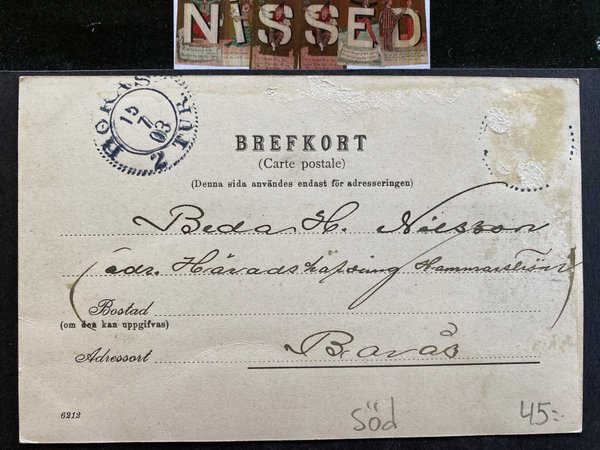 NISSED
BOR
TUR
15
7
03
2
BREFKORT
(Carte postale)
(Denna sida användes endast för adresseringen)
Beda H. Nilsson
(adr. Häradshöfding Hammarström)
Bostad
(om den kan uppgifvas)
Adressort
Borås
6212
söd
45:-